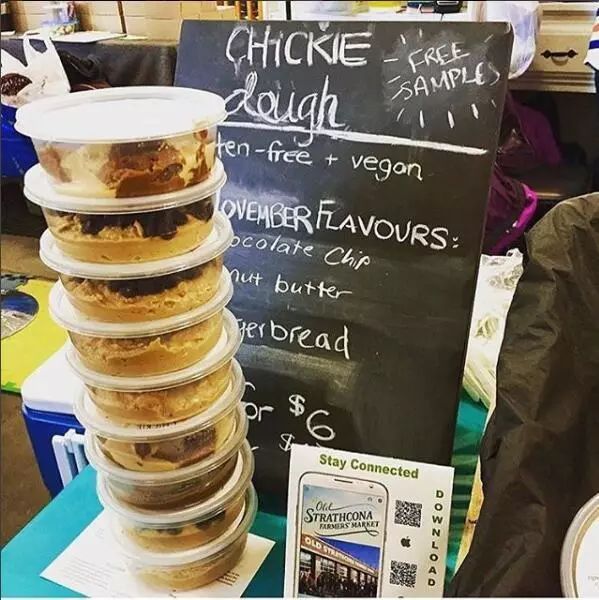 CHICKIE
dough
- FREE
SAMPLES
ten-free + vegan
OVEMBER FLAVOURS:
ocolate Chip
nut butter
gerbread
or $6
$
Stay Connected
Old
STRATHCONA
FARMERS' MARKET
OLD STRATHCONA
DOWNLOAD